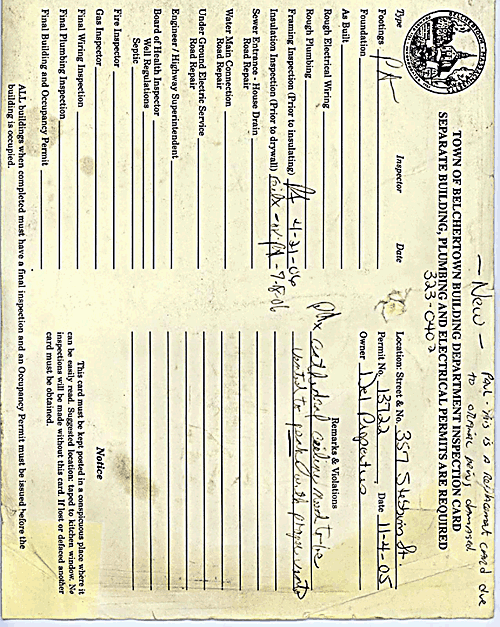 — New — Paul - This is a replacement card due
to original being damaged
TOWN OF BELCHERTOWN BUILDING DEPARTMENT INSPECTION CARD
SEPARATE BUILDING, PLUMBING AND ELECTRICAL PERMITS ARE REQUIRED
323-0402
Type Inspector Date
Footings PA
Foundation
As Built
Rough Electrical Wiring
Rough Plumbing
Framing Inspection (Prior to insulating) PA 4-21-06
Insulation Inspection (Prior to drywall) - 7-18-06
Sewer Entrance - House Drain
Road Repair
Water Main Connection
Road Repair
Under Ground Electric Service
Road Repair
Engineer / Highway Superintendent
Board of Health Inspector
Well Regulations
Septic
Fire Inspector
Gas Inspector
Final Wiring Inspection
Final Plumbing Inspection
Final Building and Occupancy Permit
Location: Street & No. 357 Stebbins St.
Permit No. 13722 Date 11-4-05
Owner Del Properties
Remarks & Violations
cathedral ceilings need to be
vented to peak with proper vents
Notice
This card must be kept posted in a conspicuous place where it
can be easily read. Suggested location: taped to kitchen window. No
inspections will be made without this card. If lost or defaced another
card must be obtained.
ALL buildings when completed must have a final inspection and an Occupancy Permit must be issued before the
building is occupied.